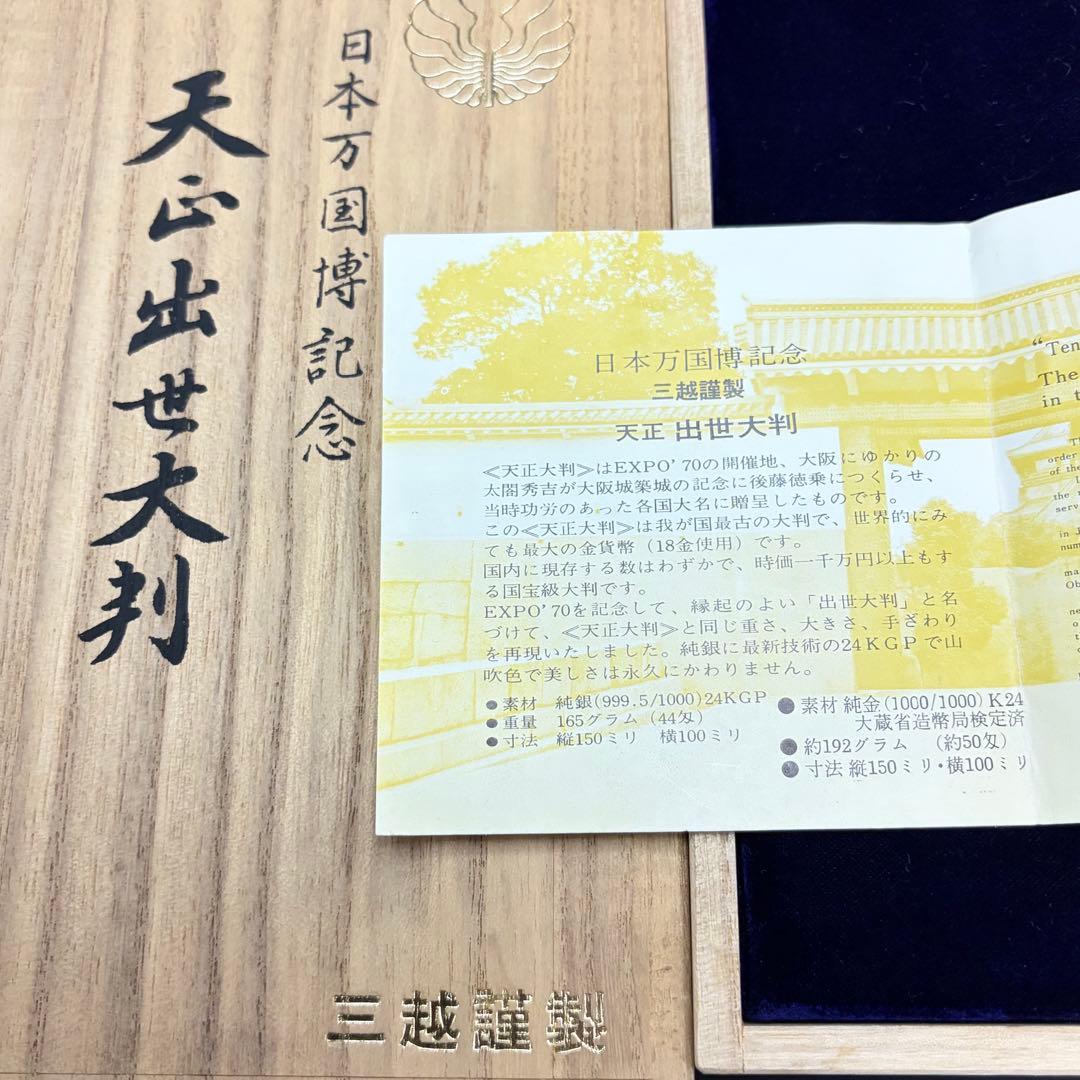 日本万国博記念
天正出世大判
三越謹製
日本万国博記念
三越謹製
天正 出世大判
≪天正大判≫はEXPO'70の開催地、大阪にゆかりの
太閤秀吉が大阪城築城の記念に後藤徳乗につくらせ、
当時功労のあった各国大名に贈呈したものです。
この≪天正大判≫は我が国最古の大判で、世界的にみ
ても最大の金貨幣(18金使用)です。
国内に現存する数はわずかで、時価一千万円以上もす
る国宝級大判です。
EXPO'70を記念して、縁起のよい「出世大判」と名
づけて、≪天正大判≫と同じ重さ、大きさ、手ざわり
を再現いたしました。純銀に最新技術の24KGPで山
吹色で美しさは永久にかわりません。
●素材 純銀(999.5/1000)24KGP
●重量 165グラム(44匁)
●寸法 縦150ミリ 横100ミリ
●素材 純金(1000/1000)K24
大蔵省造幣局検定済
●約192グラム (約50匁)
●寸法 縦150ミリ・横100ミリ
"Ten
The
in t
order
of the
the
serv
in J
num
ma
Ob